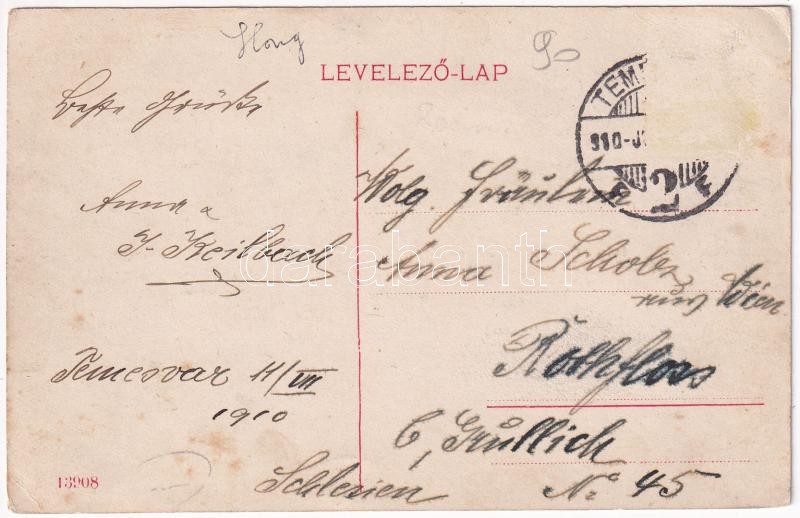 LEVELEZŐ-LAP
90
TEM
910-JU
Beste Grüße
Anna &
J. Keilbach
Temesvar 11/VII
1910
Wolg. Fräulein
Anna Scholz
aus Wien
Rothfloss
b, Grullich
No 45
Schlesien
13908
darabanth